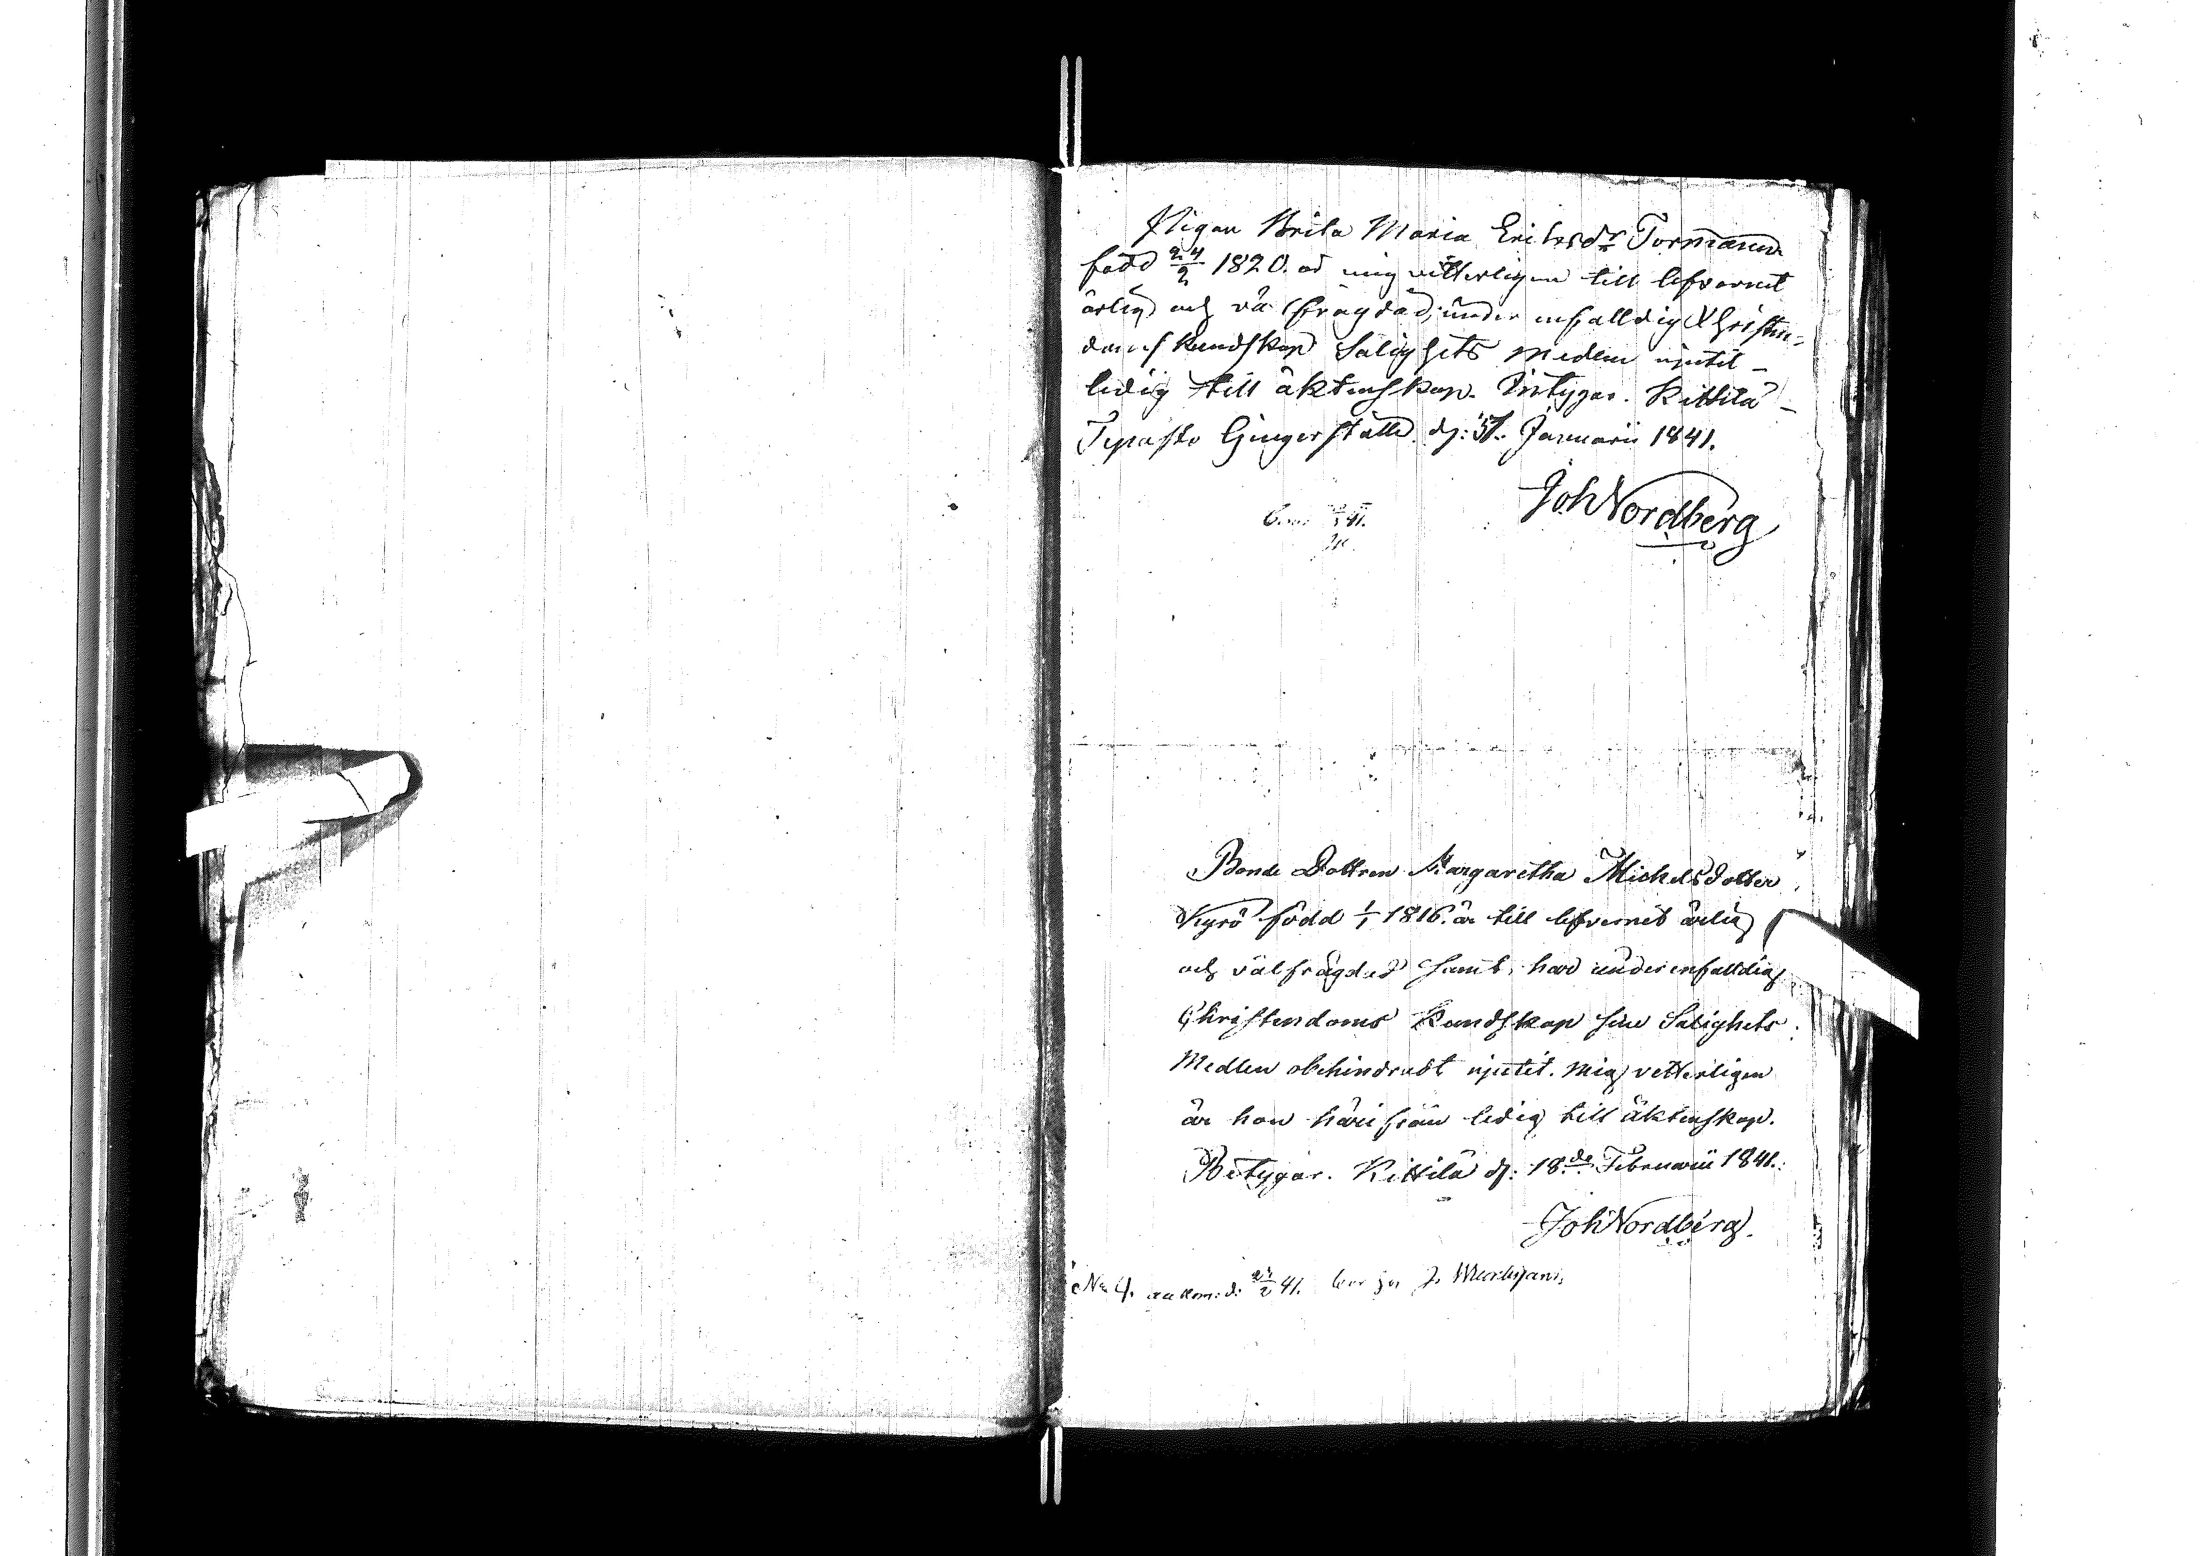 Pigan Brita Maria Ericksdr Tormanen
född 24/2 1820. är mig vitterligen till lefvernet
ärlig och väl frägdad; under enfalldig Christen-
doms kundskap Salighets medlen njutit –
ledig till äktenskap. Intygar. Kittilä –
Tepasto Gingerställe dy: 31. Januarii 1841.
Joh Nordberg
Bonde Dottren Margaretha Michelsdotter
Kyrö född 1/1 1816. är till lefvernet ärlig
och välfrägdad samt har under enfalldig
Christendoms Kundskap sine Salighets
Medlen obehindradt njutit. Mig vetterligen
är hon härifrån ledig till äktenskap.
Betygar. Kittilä dy: 18de Februarii 1841.
Joh Nordberg.
No 4. ankom: d: 23/2 41.